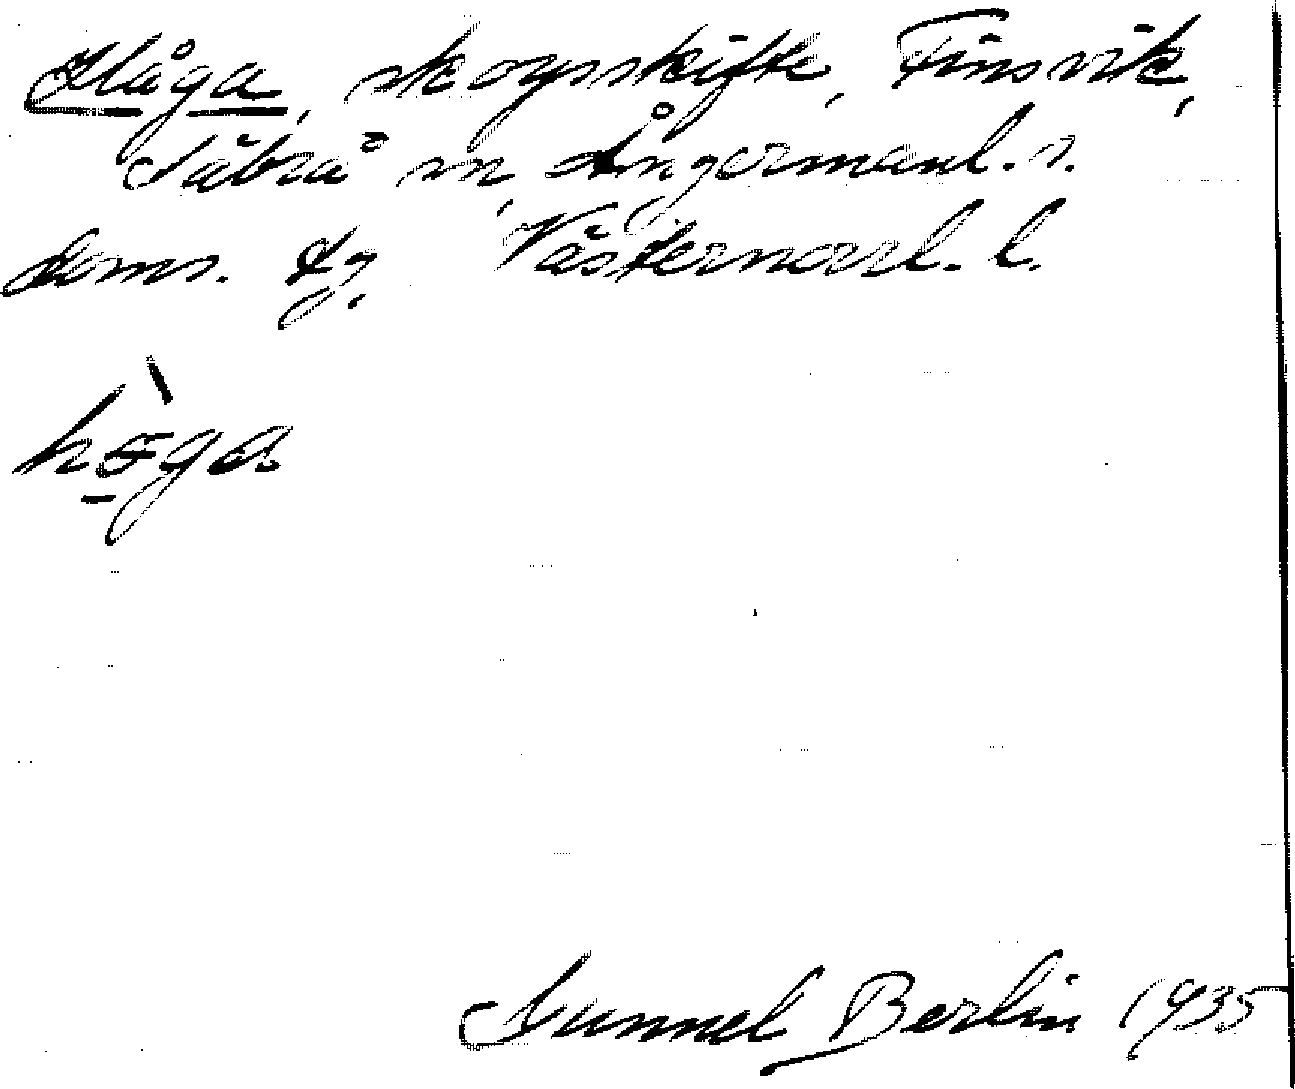 Håga, skogsskifte, Finsvik,
Säbrå sn, Ångermanl. s.
doms. tg, Västernorrl. l.
hǫ̀ga
Gunnel Berlin 1935